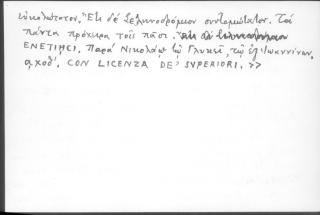 εὐκολώτατον. Ἔτι δὲ Σεληνοδρόμιον συντομώτατον. Τὰ
πάντα πρόχειρα τοῖς πᾶσι.
ΕΝΕΤΙΗΣΙ. Παρὰ Νικολάῳ τῷ Γλυκεῖ, τῷ ἐξ Ἰωαννίνων.
αχοδ΄. CON LICENZA DE' SUPERIORI. >>